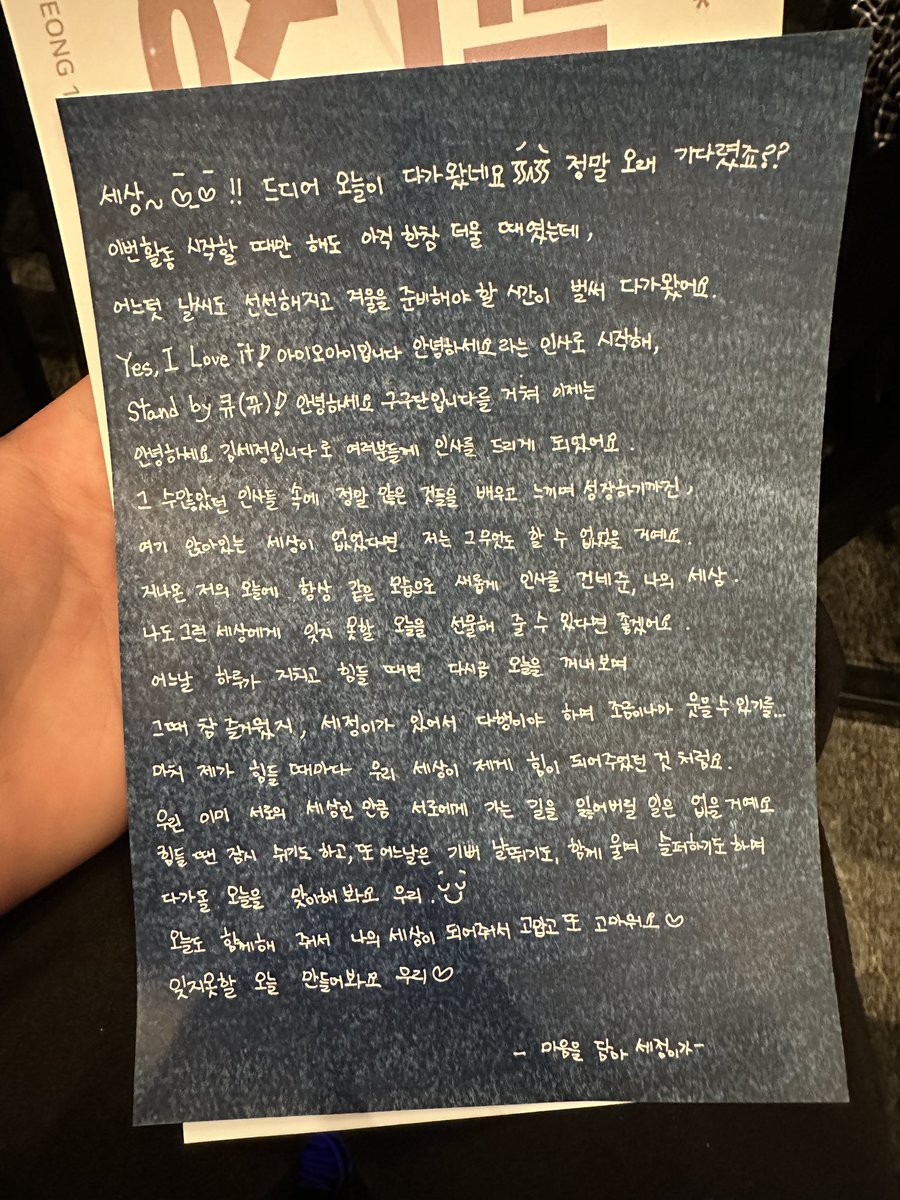 EONG 1
세상~ ♡_♡ !! 드디어 오늘이 다가왔네요 ㅠㅠ 정말 오래 기다렸죠??
이번활동 시작할 때만 해도 아직 한참 더울 때였는데,
어느덧 날씨도 선선해지고 겨울을 준비해야 할 시간이 벌써 다가왔어요.
Yes, I Love it! 아이오아이입니다 안녕하세요라는 인사로 시작해,
Stand by 큐(뀨)! 안녕하세요 구구단입니다를 거쳐 이제는
안녕하세요 김세정입니다로 여러분들게 인사를 드리게 되었어요.
그 수많았던 인사들 속에 정말 많은 것들을 배우고 느끼며 성장하기까진,
여기 앉아있는 세상이 없었다면 저는 그무엇도 할 수 없었을 거예요.
지나온 저의 오늘에 항상 같은 모습으로 새롭게 인사를 건네준, 나의 세상.
나도 그런 세상에게 잊지 못할 오늘을 선물해 줄 수 있다면 좋겠어요.
어느날 하루가 지치고 힘들 때면 다시금 오늘을 꺼내보며
그때 참 즐거웠지, 세정이가 있어서 다행이야 하며 조금이나마 웃을 수 있기를...
마치 제가 힘들 때마다 우리 세상이 제게 힘이 되어주었던 것처럼요.
우린 이미 서로의 세상인 만큼 서로에게 가는 길을 잃어버릴 일은 없을거예요
힘들 땐 잠시 쉬기도 하고, 또 어느날은 기뻐 날뛰기도, 함께 울며 슬퍼하기도하며
다가올 오늘을 맞이해 봐요 우리.
오늘도 함께해 줘서 나의 세상이 되어주어서 고맙고 또 고마워요♡
잊지못할 오늘 만들어봐요 우리♡
- 마음을 담아 세정이가-